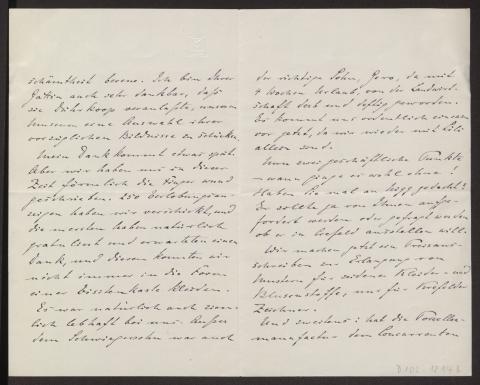 schämtheit bereue. Ich bin Ihrer
Gattin auch sehr dankbar, daß
sie Dührkoop veranlaßte, unserem
Museum eine Auswahl ihrer
vorzüglichen Bildnisse zu schicken.
Mein Dank kommt etwas spät.
Aber wir haben uns in dieser
Zeit förmlich die Finger wund
geschrieben. 250 Verlobungsan-
zeigen haben wir verschickt, und
die meisten haben natürlich
gratuliert und erwarteten einen
Dank, und diesen konnten wir
nicht immer in die Form
einer Visitenkarte kleiden.
Es war natürlich auch ziem-
lich lebhaft bei uns. Außer
dem Schwiegersohn war auch
der richtige Sohn, Gero, da mit
4 Wochen Urlaub, von der Landwirt-
schaft derb und deftig geworden.
Es kommt uns ordentlich einsam
vor jetzt, da wir wieder mit Lili
allein sind.
Nun zwei geschäftliche Punkte
– wann ginge es wohl ohne!
Haben Sie mal an gedacht?
Er sollte ja von Ihnen aufge-
fordert werden oder gefragt werden
ob er in Crefeld ausstellen will.
Wir machen jetzt ein Preisaus-
schreiben zu Erlangung von
Mustern für seidene Kleider- und
Blusenstoffe, nur für Krefelder
Zeichner.
Und zweitens: hat die Porzellan-
manufactur dem Concurrenten
D 102 - 1214 b